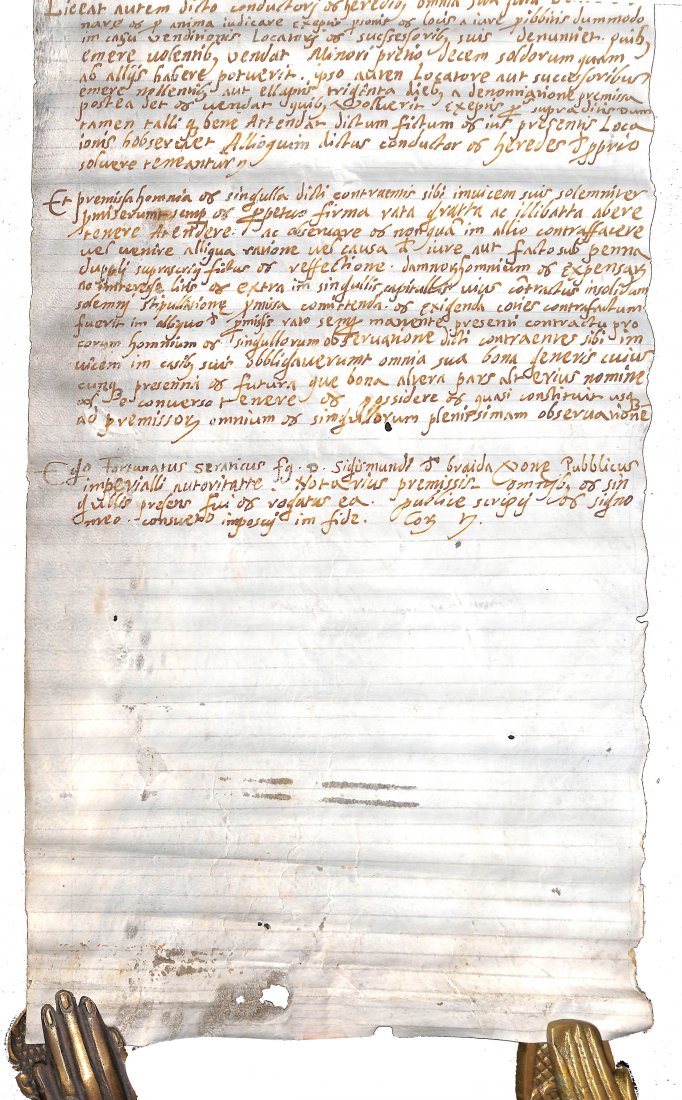 Liceat autem dicto conductori et heredib, omnia sua jura
nare et p anima iudicare exeptis pionis et locis a iure phibitis dummodo
in casu venditionis Locatorj et sucsessorib, suis denuntiet. quib,
emere volentib, vendat Minori pretio decem soldorum quam
ab allijs habere potuerit. ipso autem Locatore aut successoribus
emere nollentib, aut ellapsis triginta dieb, a denontiatione premissa
postea det et vendat quib, voluerit exeptis supradictis dum
tamen talli q bene Attendat dictum fictum et ius presentis Loca
ionis hobservet Allioquim dictus conductor et heredes
solvere teneantur
Et premissa homnia et singulla dicti contraentis sibi invicem suis solemniter
pmiserunt semp et ppetuo firma rata gratta ac illibatta abere
tenere Atendere ac observare et nonqua im allio contraffacere
vel venire alliqua ratione vel causa d iure aut facto sub penna
duppli et reffectione. damnor homnium et expensar
ac interesse litis et extra im singulis capitullis huius contractus insolidum
solemnj stipullatione pmissa comittenda. et exigenda coties contrafactum
fuerit im alliquo d pmissis rato semp manente presenti contractu pro
corum homnium et singullorum observatione dicti contraentes sibi im
vicem im casib, suis obbligaverunt omnia sua bona generis cuius
cunq presentia et futura que bona altera pars alterius nomine
et e converso tenere et possidere et quasi constituit usq
ad premissor omnium et singullorum plenissimam observatione
Ego Fortunatus seranicus fq. D. Sigismundi d braida Pubblicus
imperialli autoritatte. Notarius premissis omnib, et sin
gullis presens fui et rogatus ea publice scripsj et signo
meo. consueto imposuj im fide.